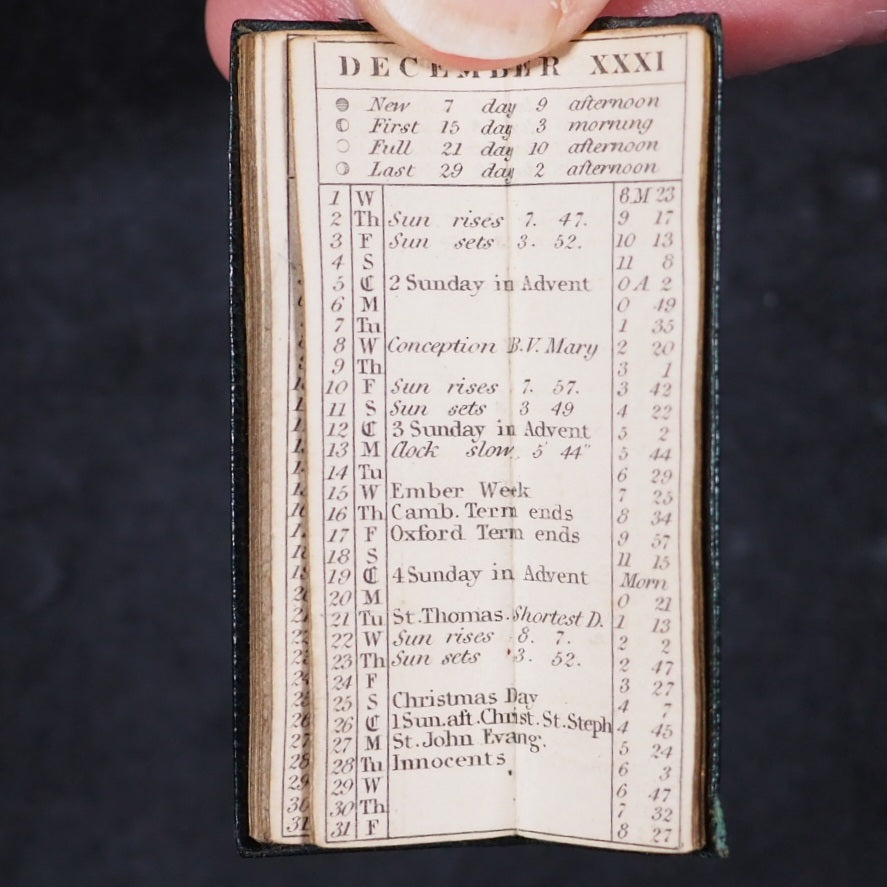 DECEMBER XXXI
New 7 day 9 afternoon
First 15 day 3 morning
Full 21 day 10 afternoon
Last 29 day 2 afternoon
1 W 8M 23
2 Th Sun rises 7. 47. 9 17
3 F Sun sets 3. 52. 10 13
4 S 11 8
5 C 2 Sunday in Advent 0 A 2
6 M 0 49
7 Tu 1 35
8 W Conception B.V. Mary 2 20
9 Th 3 1
10 F Sun rises 7. 57. 3 42
11 S Sun sets 3 49 4 22
12 C 3 Sunday in Advent 5 2
13 M Clock slow. 5' 44" 5 44
14 Tu 6 29
15 W Ember Week 7 25
16 Th Camb. Term ends 8 34
17 F Oxford Term ends 9 57
18 S 11 15
19 C 4 Sunday in Advent Morn
20 M 0 21
21 Tu St. Thomas. Shortest D. 1 13
22 W Sun rises 8. 7. 2 2
23 Th Sun sets 3. 52. 2 47
24 F 3 27
25 S Christmas Day 4 7
26 C 1 Sun. aft. Christ. St. Steph 4 45
27 M St. John Evang. 5 24
28 Tu Innocents 6 3
29 W 6 47
30 Th 7 32
31 F 8 27